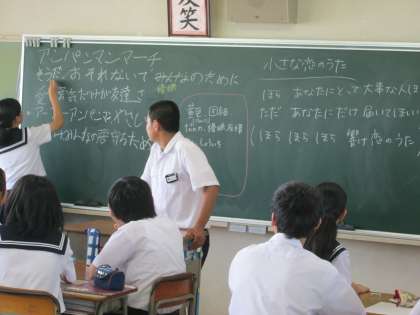 笑
アンパンマンマーチ
そうだ おそれないで みんなのために
優暖
愛と勇気だけが友達さ
アンパンマンやさしい
みんなの夢守るため
団結
協力、優暖、友情
小さな恋のうた
ほら あなたにとって 大事な人ほ
ただ あなたにだけ 届いてほしい
ほら ほら ほら 響け恋のうた